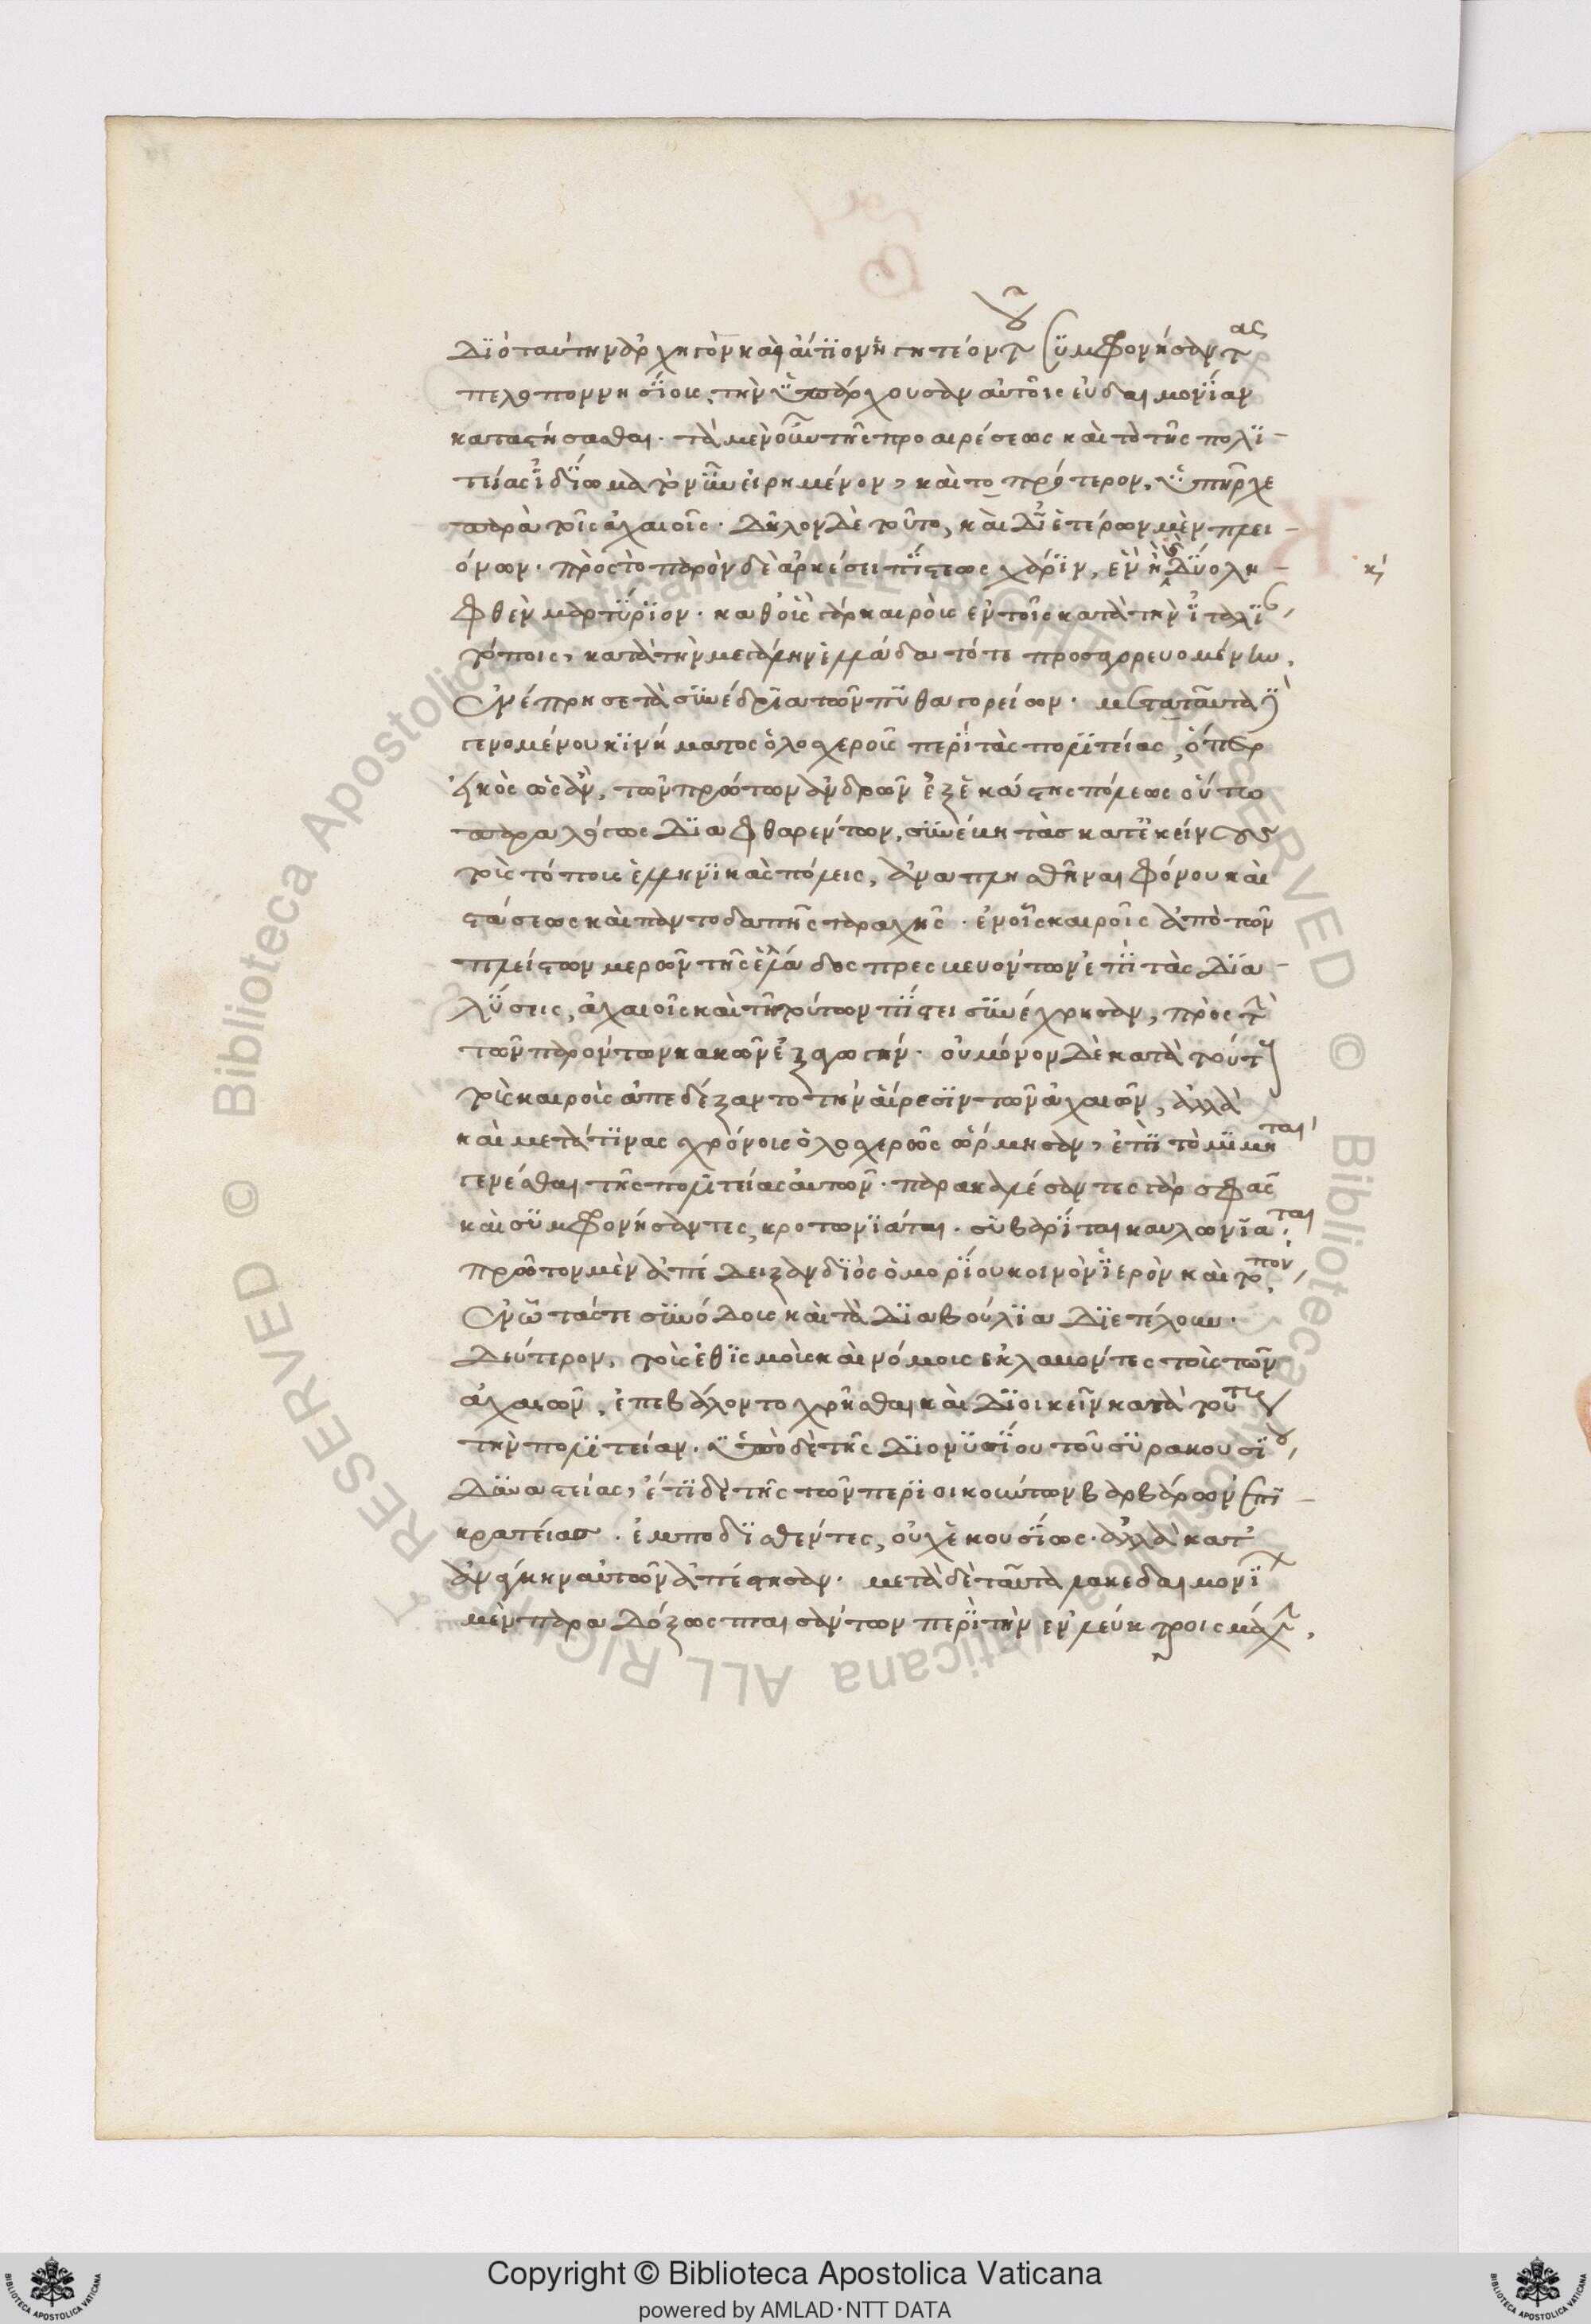 Διὸ ταύτην ἀρχηγὸν καὶ αἴτιον ἡγητέον τοῦ συμφρονήσαντας
πελοποννησίους, τὴν ὑπάρχουσαν αὐτοῖς εὐδαιμονίαν
καταστήσασθαι. τὰ μὲν οὖν τῆς προαιρέσεως καὶ τὸ τῆς πολι-
τείας ἰδίωμα τὸ νῦν εἰρημένον, καὶ το πρότερον, ὑπῆρχε
παρὰ τοῖς ἀχαιοῖς. Δῆλον δὲ τοῦτο, καὶ δι' ἑτέρων μὲν πλει-
όνων. πρὸς τὸ παρὸν δὲ ἀρκέσει πίστεως χάριν, ἓν ἢ
φθὲν μαρτύριον. καθ' οὓς γὰρ καιροὺς ἐν τοῖς κατὰ τὴν ἰταλί
τόποις, κατὰ τὴν μεγάλην ἑλλάδα τότε προσαγορευομένην,
ἐνέπρησε τὰ συνέδρια τῶν πυθαγορείων. μετὰ ταῦτα
γενομένου κινήματος ὁλοσχεροῦς περὶ τὰς πολιτείας, ὅπερ
εἰκὸς ὡς ἂν, τῶν πρώτων ἀνδρῶν ἐξ ἑκάστης πόλεως οὕτω
παραλόγως διαφθαρέντων, συνέβη τὰσ κατ' ἐκείνους
τοὺς τόπους ἑλληνικὰς πόλεις, ἀναπλησθῆναι φόνου καὶ
στάσεως καὶ παντοδαπῆς ταραχῆς. ἐν οἷς καιροῖς ἀπὸ τῶν
πλείστων μερῶν τῆς ἑλλάδος πρεσβευόντων ἐπὶ τὰς δια-
λύσεις, ἀχαιοῖς καὶ τῆ τούτων πίστει συνέχρησαν, πρὸς τὴν
τῶν παρόντων κακῶν ἐξαγωγήν. οὐ μόνον δὲ κατὰ τούτους
τοὺς καιροὺς ἀπεδέξαντο τὴν αἵρεσιν τῶν ἀχαιῶν, ἀλλὰ
καὶ μετά τινας χρόνους ὁλοσχερῶς ὥρμησαν, ἐπὶ τὸ μιμηταὶ
γενέσθαι τῆς πολιτείας αὐτῶν. παρακαλέσαντες γὰρ σφᾶς
καὶ συμφρονήσαντες, κροτωνιάται. συβαρίται καυλωνιαται,
πρῶτον μὲν ἀπέδειξαν διὸς ὁμορίου κοινὸν ἱερὸν καὶ τόπον,
ἐν ᾧ τάς τε συνόδους καὶ τὰ διαβούλια διετέλουν.
Δεύτερον, τοὺς ἐθισμοὺς καὶ νόμους ἐκλαβόντες τοὺς τῶν
ἀχαιῶν, ἐπεβάλοντο χρῆσθαι καὶ διοικεῖν κατὰ τούτους
τὴν πολιτείαν. ὑπὸ δὲ τῆς διονυσίου τοῦ συρακουσίου,
Δυναστείας, ἔτι δὲ τῆς τῶν περιοικούντων βαρβάρων ἐπι-
κρατείασ. ἐμποδισθέντες, οὐχ ἑκουσίως. ἀλλὰ κατ'
ἀνάγκην αὐτῶν ἀπέστησαν. μετὰ δὲ ταῦτα λακεδαιμονί
μὲν παραδόξως πταισάντων περὶ τὴν ἐν λεύκτροις μάχην,